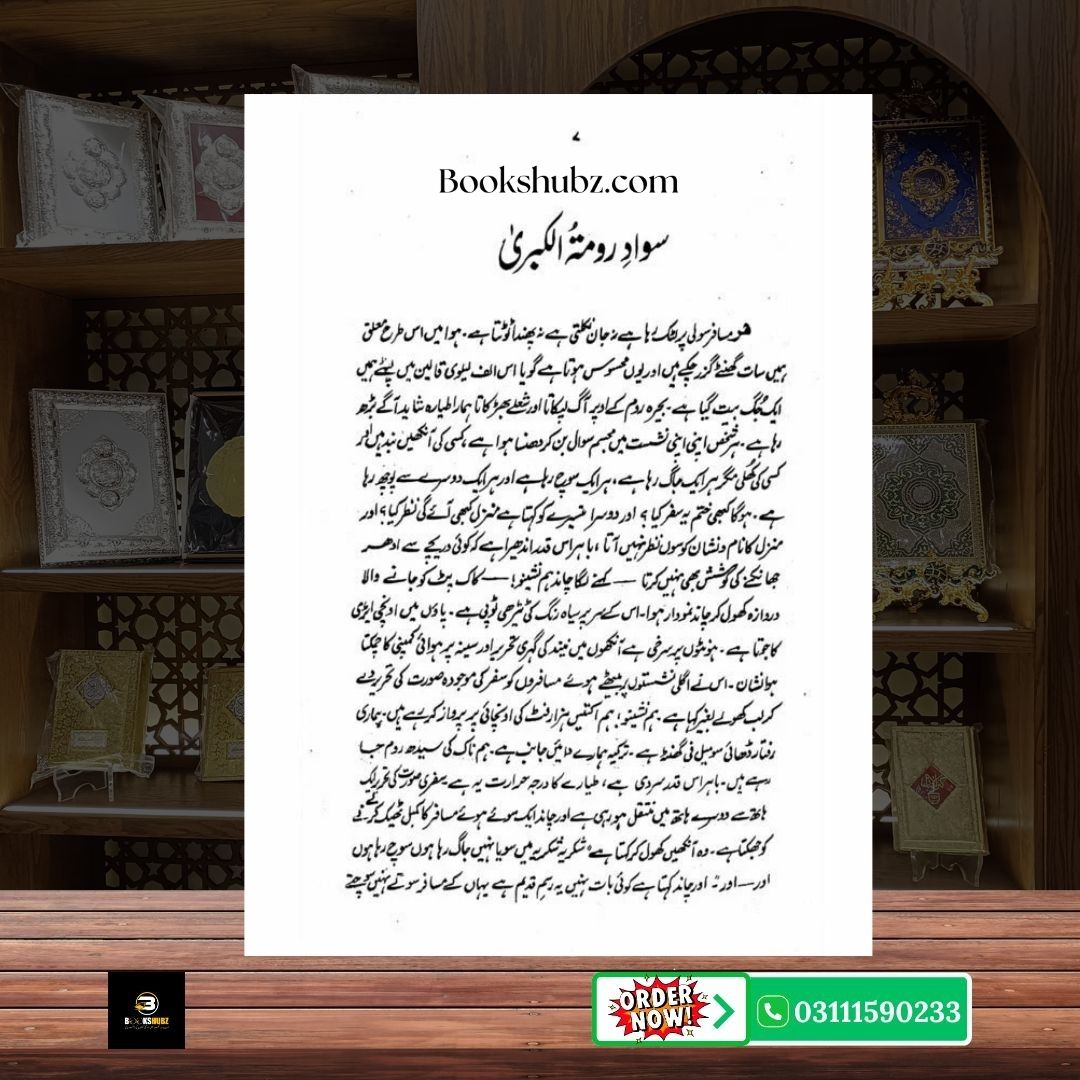 ۷
Bookshubz.com
سوادِ رومتہُ الکبریٰ
ہر مسافر سولی پر لٹک رہا ہے نہ جان نکلتی ہے نہ پھندا ٹوٹتا ہے۔ ہوا میں اس طرح معلق
ہمیں سات گھنٹے گزر چکے ہیں اور یوں محسوس ہوتا ہے گویا اس الف لیلوی قالین میں بیٹھے ہمیں
ایک جُگ بیت گیا ہے۔ بحیرہ روم کے اوپر آگ لپکاتا اور شعلے بھڑکاتا ہمارا طیارہ شاید آگے بڑھ
رہا ہے۔ ہر شخص اپنی اپنی نشست میں مجسم سوال بن کر دھنسا ہوا ہے، کسی کی آنکھیں بند ہیں اور
کسی کی کھُلی مگر ہر ایک جاگ رہا ہے، ہر ایک سوچ رہا ہے اور ہر ایک دوسرے سے پوچھ رہا
ہے۔ ہوگا کبھی ختم یہ سفر کیا؟ اور دوسرا تیسرے کو کہتا ہے منزل کبھی آئے گی نظر کیا؟ اور
منزل کا نام و نشان کوسوں نظر نہیں آتا، باہر اس قدر اندھیرا ہے کہ کوئی دریچے سے ادھر
جھانکنے کی کوشش بھی نہیں کرتا — کہنے لگا چاند ہم نشینو! — کاک پٹ کو جانے والا
دروازہ کھول کر چاند نمودار ہوا۔ اس کے سر پر سیاہ رنگ کی ٹیڑھی ٹوپی ہے۔ پاؤں میں اونچی ایڑی
کا جوتا ہے۔ ہونٹوں پر سرخی ہے آنکھوں میں نیند کی گہری تحریر اور سینہ پر ہوائی کمپنی کا چمکتا
ہوا نشان۔ اس نے اگلی نشستوں پر بیٹھے ہوئے مسافروں کو سفر کی موجودہ صورت کی تحریر دے
کر لب کھولے بغیر کہا ہے۔ ہم نشینو! ہم اکتیس ہزار فٹ کی اونچائی پر پرواز کر رہے ہیں۔ ہماری
رفتار ڈھائی سو میل فی گھنٹہ ہے۔ ترکیہ ہمارے دائیں جانب ہے۔ ہم ناک کی سیدھ روم جا
رہے ہیں۔ باہر اس قدر سردی ہے، طیارے کا درجہ حرارت یہ ہے سفری صورت کی تحریر ایک
ہاتھ سے دوسرے ہاتھ میں منتقل ہو رہی ہے اور چاند ایک سوئے ہوئے مسافر کا کمبل ٹھیک کرنے
کو جھکتا ہے۔ وہ آنکھیں کھول کر کہتا ہے "شکریہ شکریہ میں سویا نہیں جاگ رہا ہوں سوچ رہا ہوں
اور — اور" اور چاند کہتا ہے کوئی بات نہیں یہ رسم قدیم ہے یہاں کے مسافر سوتے نہیں سوچتے
BOOKSHUBZ
ORDER NOW!
03111590233